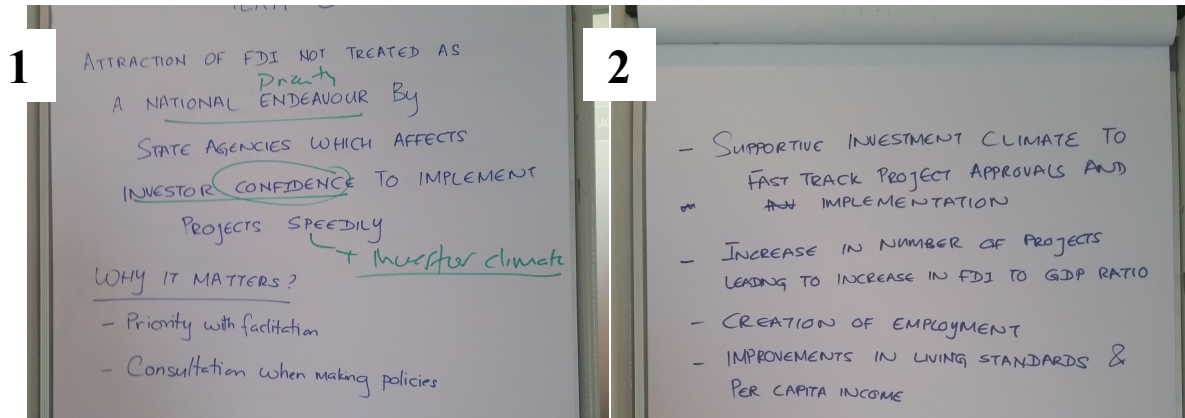 1
ATTRACTION OF FDI NOT TREATED AS
Priority
A NATIONAL ENDEAVOUR By
STATE AGENCIES WHICH AFFECTS
INVESTOR CONFIDENCE TO IMPLEMENT
PROJECTS SPEEDILY
+ Investor climate
WHY IT MATTERS?
- Priority with faclitation
- Consultation when making policies
2
- SUPPORTIVE INVESTMENT CLIMATE TO
FAST TRACK PROJECT APPROVALS AND
IMPLEMENTATION
- INCREASE IN NUMBER OF PROJECTS
LEADNG TO INCREASE IN FDI TO GDP RATIO
- CREATION OF EMPLOYMENT
- IMPROVEMENTS IN LIVING STANDARDS &
PER CAPITA INCOME